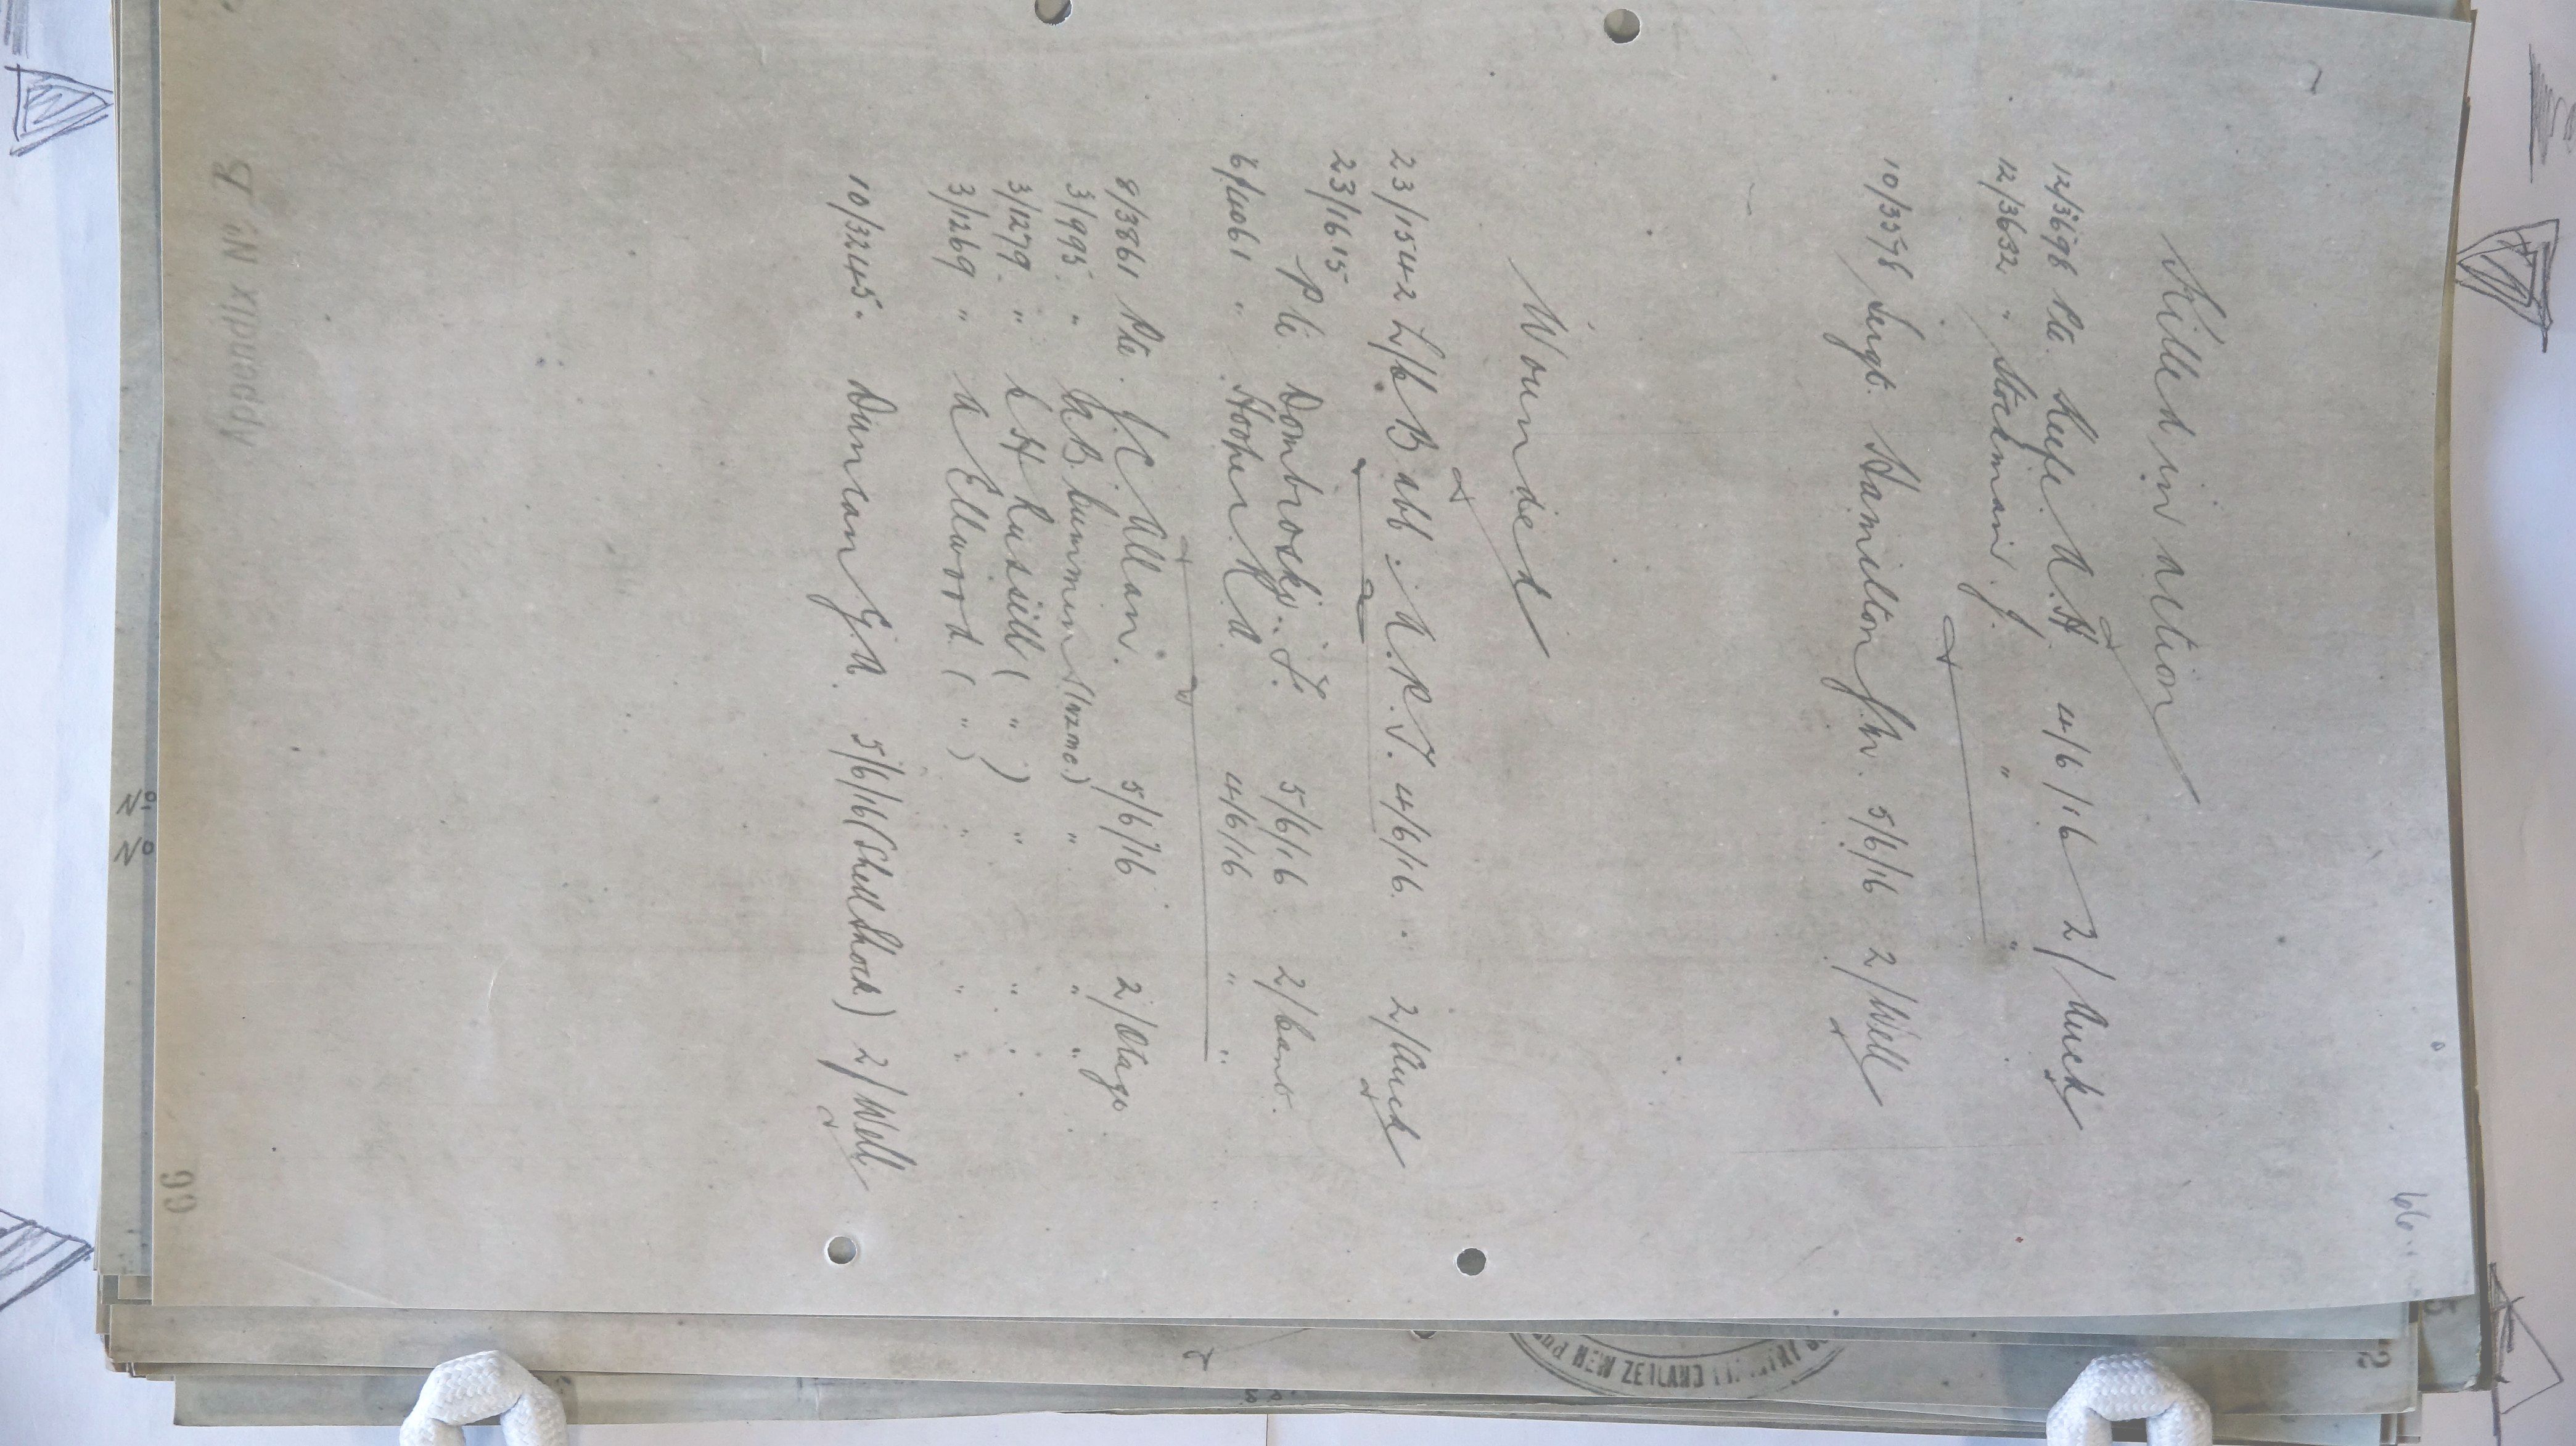 66
Killed in action
12/3698 Pte. Keefe A.H. 4/6/16 2/Auck
12/3632 " Stockman J. " "
10/3578 Sergt. Hamilton J.W. 5/6/16 2/Well
Wounded
23/1542 L/c Babb. A.R.T. 4/6/16. 2/Auck
23/1615
Pte Dombroski. F. 5/6/16 2/Cant.
6/4061 " Hooper R A 4/6/16 " "
8/3861 Pte. J C Allan. 5/6/16 2/Otago
3/995. " B Cummins (NZMC.) " " "
3/1279. " C H Russell ( " ) " " "
3/1269 " A Ellwood ( " ) " " "
10/3245. Duncan G.A. 5/6/16 (Shell Shock) 2/Well
Appendix No.
66
No.
No
NEW ZEALAND
2